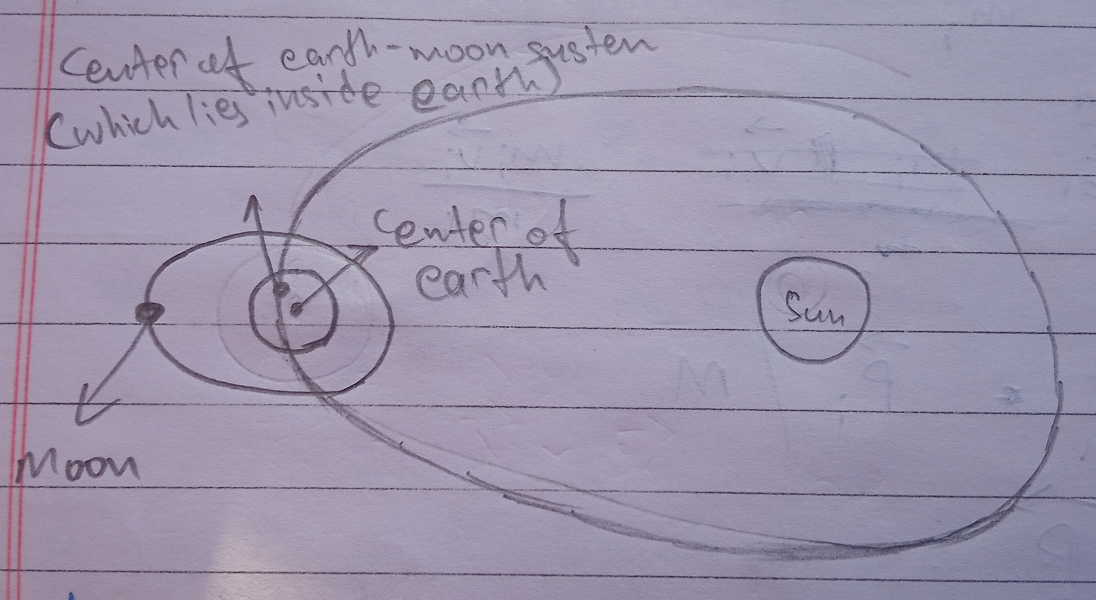 Center of earth-moon system
(which lies inside earth)
Center of
earth
Sun
Moon